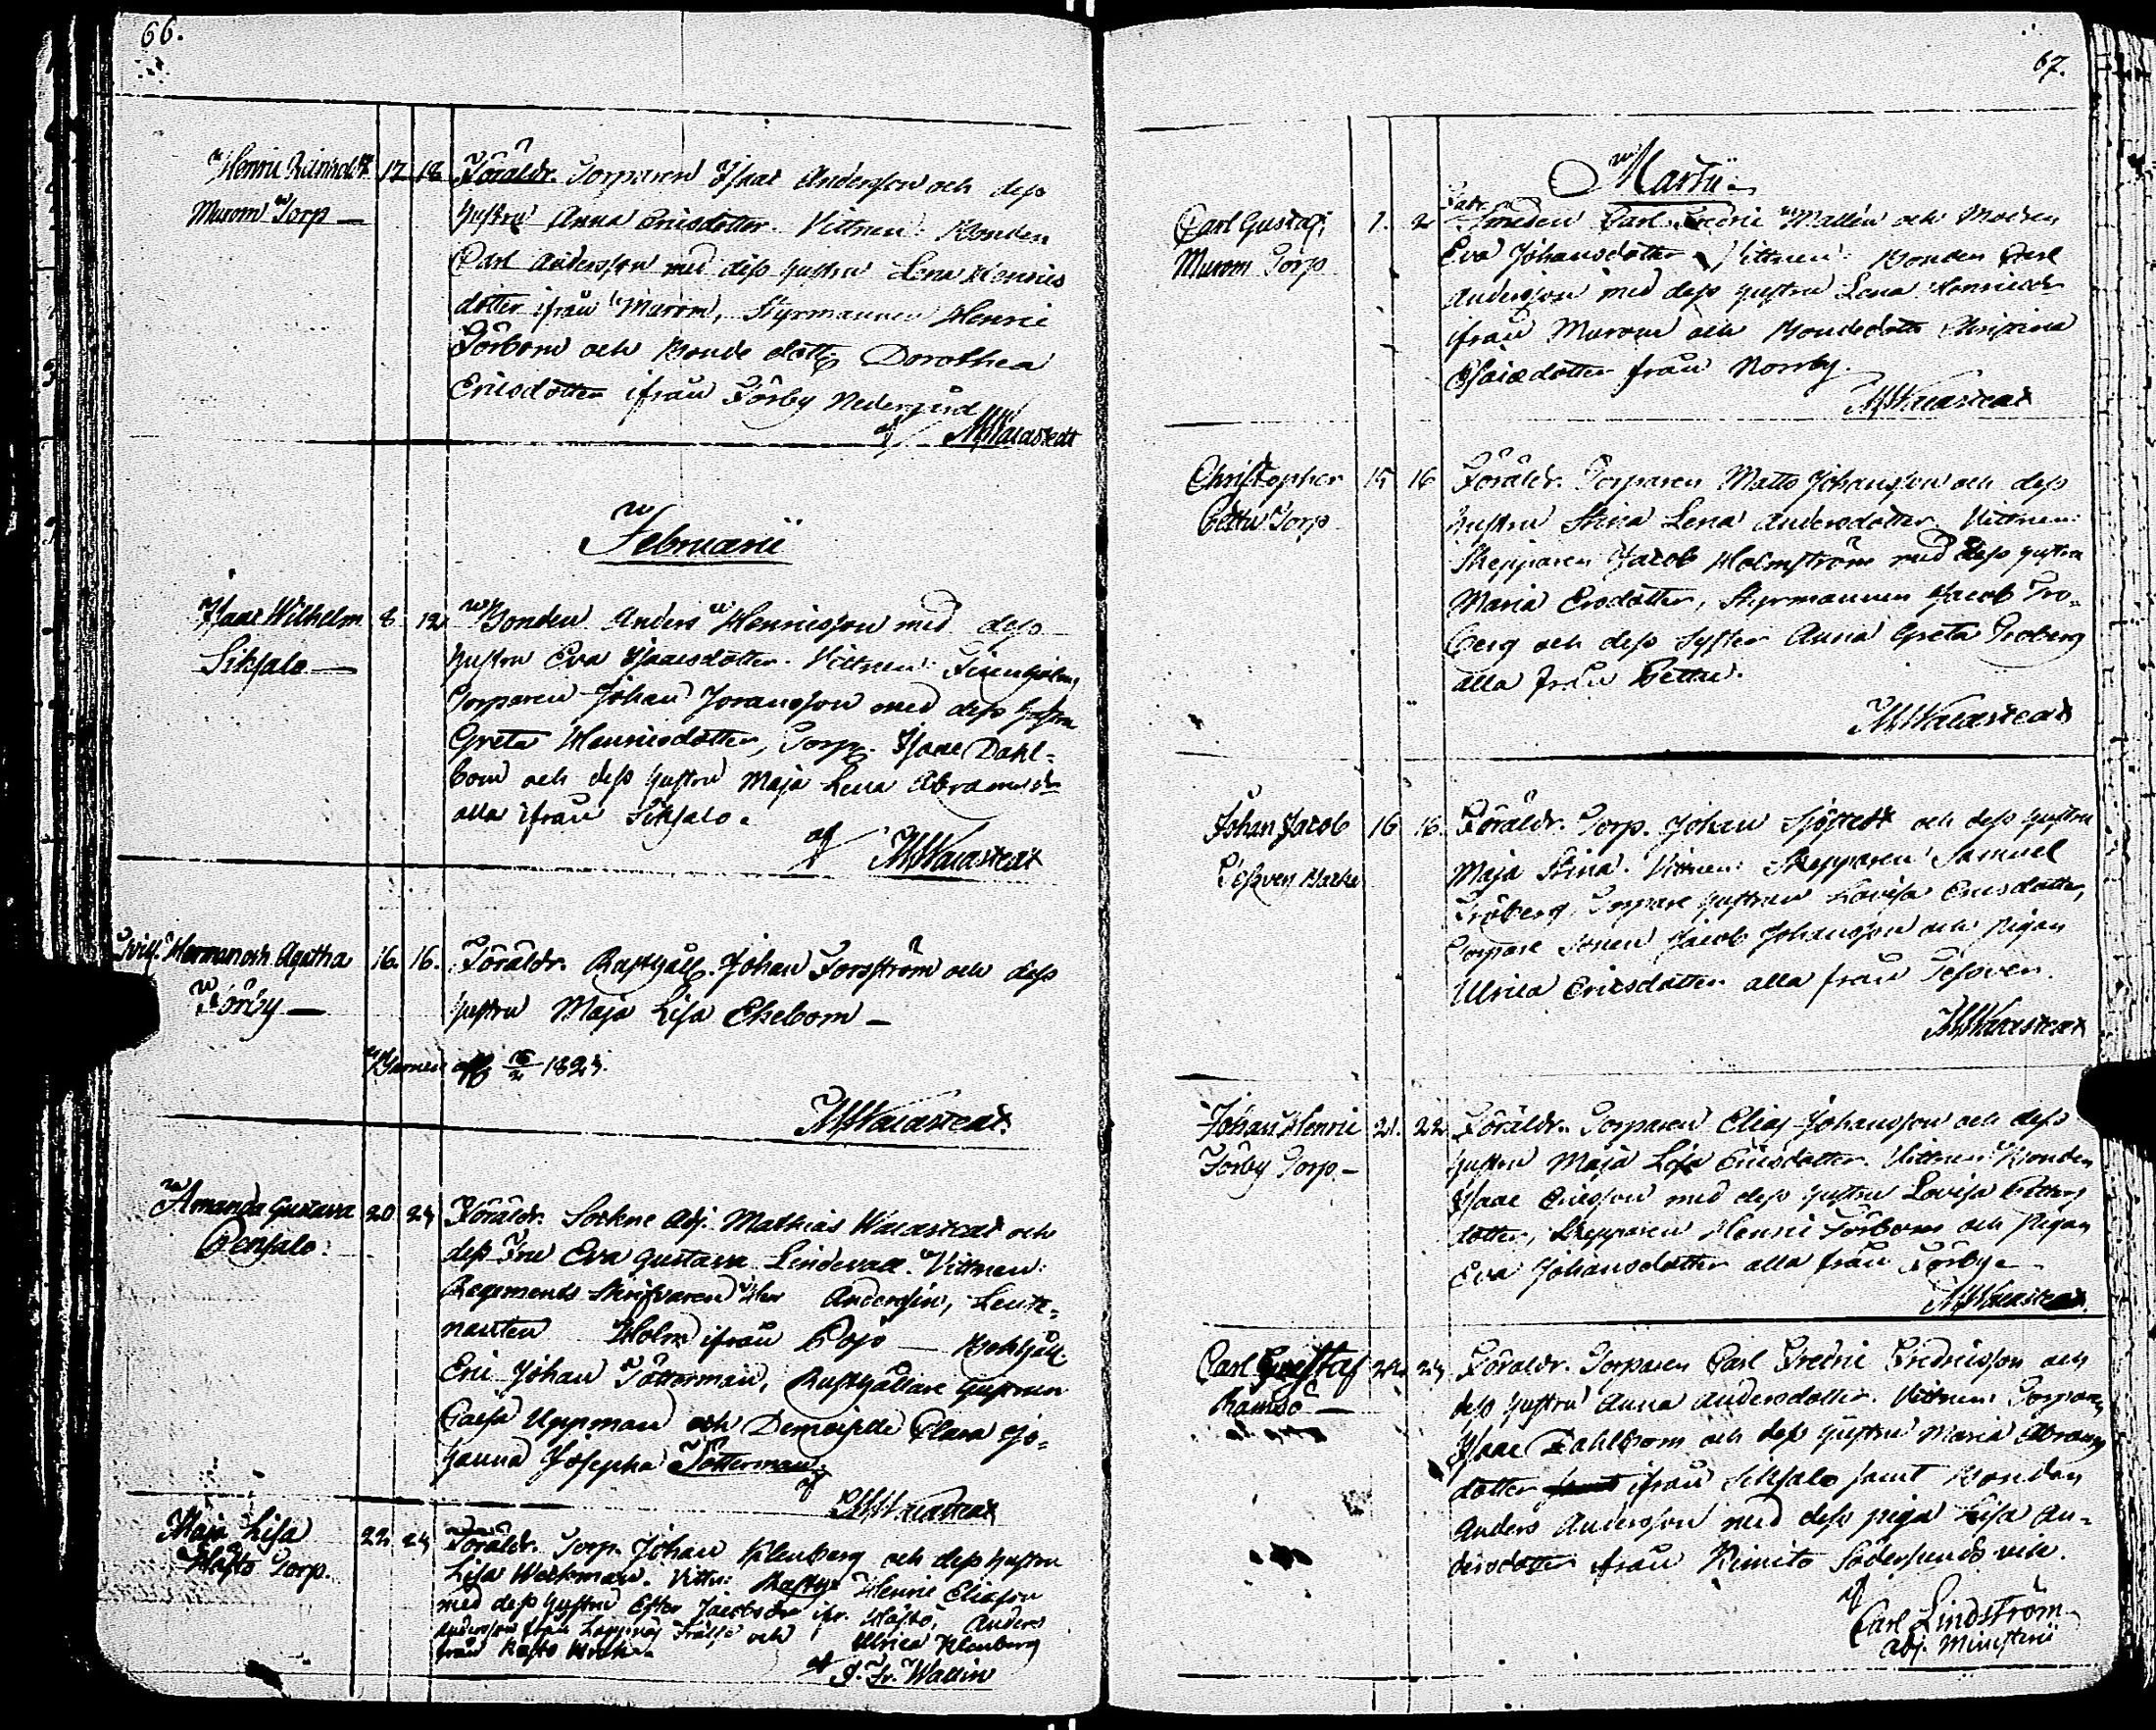 66.
Henric Reinholdt 17. 18. Föräldr. Torparen Isaac Andersson och dess
Murom Torp — hustru Anna Ericsdotter. Vittnen: Bonden
Carl Andersson med dess hustru Lena Henrics
dotter ifrån Murom, Styrmannen Henric
Förbom och Bonde dott. Dorothea
Ericsdotter ifrån Förby Nedergård
af M Wacastedt
Februarii
Isaac Wilhelm 8. 12 Bonden Anders Henricsson med dess
Siksalo — hustru Eva Isaacsdotter. Vittnen:
Torparen Johan Joransson med dess hustru
Greta Henricsdotter, Torp. Isaac Dahl-
bom och dess hustru Maja Lena Abramsdr
alla ifrån Siksalo.
af M Wacastedt
Tvill. Herman och Agatha 16. 16. Föräldr. Rusthåll. Johan Forsström och dess
Förby — hustru Maja Lisa Ekebom —
Barnen 16/2 1823.
M Wacastedt
Amanda Gustava 20. 23 Föräldr. Sockne Adj. Mathias Wacastedt och
Pensalo. dess Fru Eva Gustava Lindevall. Vittnen:
Regements Skrifvaren Herr Andersin, Leute-
nanten Holm ifrån Pojo — Bokhåll.
Eric Johan Tötterman, Rusthållare hustrun
Caisa Uppman och Demoiselle Clara Jo-
hanna Josepha Tötterman
af M Wacastedt
Maja Lisa 22. 23 Föräldr. Torp. Johan Klenberg och dess hustru
Torp. Lisa Workman. Vittn: Rusth. Henric Eliasson
med dess hustru Ester Jacobsdr ifr. Anders
Andersson från och Ulrica Klenberg
från
af J. Fr. Wallin
67.
Martii
Carl Gustaf 1. 2 Fadr. Smeden Carl Fredric Wallen och Modren
Murom Torp Eva Johansdotter. Vittnen: Bonden Carl
Andersson med dess hustru Lena Henricsdr
ifrån Murom och Bondedottr Christina
Esaiædotter från Norrby.
M Wacastedt
Christopher 15 16 Föräldr. Torparen Matts Johansson och dess
Pettu Torp hustru Stina Lena Andersdotter. Vittnen:
Skepparen Jacob Holmström med dess hustru
Maria Ersdotter, Styrmannen Jacob Fro-
berg och dess Syster Anna Greta Froberg
alla från Pettu.
M Wacastedt
Johan Jacob 16 16. Föräldr. Torp. Johan Sjöstedt och dess hustru
Tessven Backe Maja Stina. Vittnen: Skepparen Samuel
Fröberg, Torpare hustrun Lovisa Ericsdotter,
Torpare Sonen Jacob Johansson och pigan
Ulrica Ericsdotter alla från Tessven.
M Wacastedt
Johan Henric 21. 22 Föräldr. Torparen Elias Johansson och dess
Förby Torp — hustru Maja Lisa Ericsdotter. Vittnen: Bonden
Isaac Ericsson med dess hustru Lovisa Petters
dotter, Skepparen Henric Förbom och Pigan
Eva Johansdotter alla från Förby.
M Wacastedt
Carl Gustaf 22. 23 Föräldr. Torparen Carl Fredric Fredricsson och
Ramsö — dess hustru Anna Andersdotter. Vittnen: Torparen
Isaac Dahlbom och dess hustru Maria Abrams
dotter ifrån Siksalo samt Bonden
Anders Andersson med dess piga Lisa An-
dersdotter från Kimito Södersunds vik.
af
Carl Lindström
Adj. Ministerii